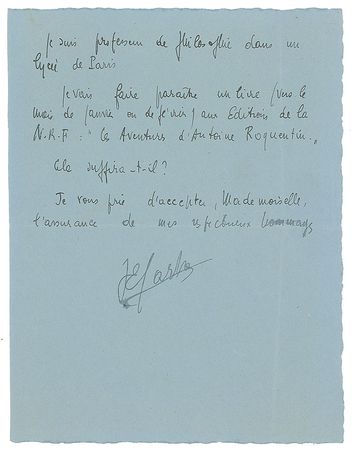 Je suis professeur de Philosophie dans un
lycée de Paris
Je vais faire paraître un livre (vers le
mois de janvier ou de février) aux Editions de la
N.R.F : " les Aventures d'Antoine Roquentin."
Cela suffira-t-il?
Je vous prie d'accepter, Mademoiselle,
l'assurance de mes respectueux hommages
JP Sartre